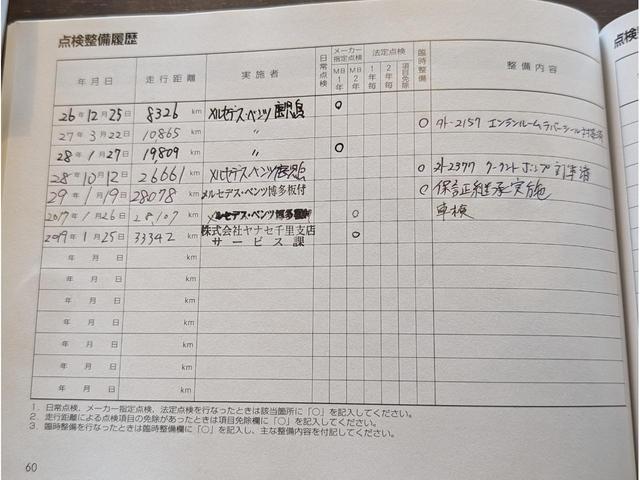 点検整備履歴
年月日 走行距離 実施者 日常点検 メーカー指定点検 MB1年 MB2年 法定点検 1年毎 2年毎 項目免除 臨時整備 整備内容
26年12月25日 8326 km メルセデス・ベンツ鹿児島 ○
27年3月22日 10865 km 〃 ○ 外-2157 エンジンルームラバーシール対策済
28年1月27日 19,809 km 〃 ○
28年10月12日 26661 km メルセデス・ベンツ鹿児島 ○ 外-2377 クーラントポンプ対策済
29年1月19日 28078 km メルセデス・ベンツ博多板付 ○ 保証継承実施
2017年1月26日 28,107 km メルセデス・ベンツ博多板付 ○ 車検
2019年1月25日 33342 km 株式会社ヤナセ千里支店 ○
サービス課
年月日 km
年月日 km
年月日 km
年月日 km
年月日 km
年月日 km
年月日 km
1．日常点検、メーカー指定点検、法定点検を行なったときは該当箇所に「○」を記入してください。
2．走行距離による点検項目の免除があったときは項目免除欄に「○」を記入してください。
3．臨時整備を行なったときは臨時整備欄に「○」を記入し、主な整備内容を付記してください。
60
点検